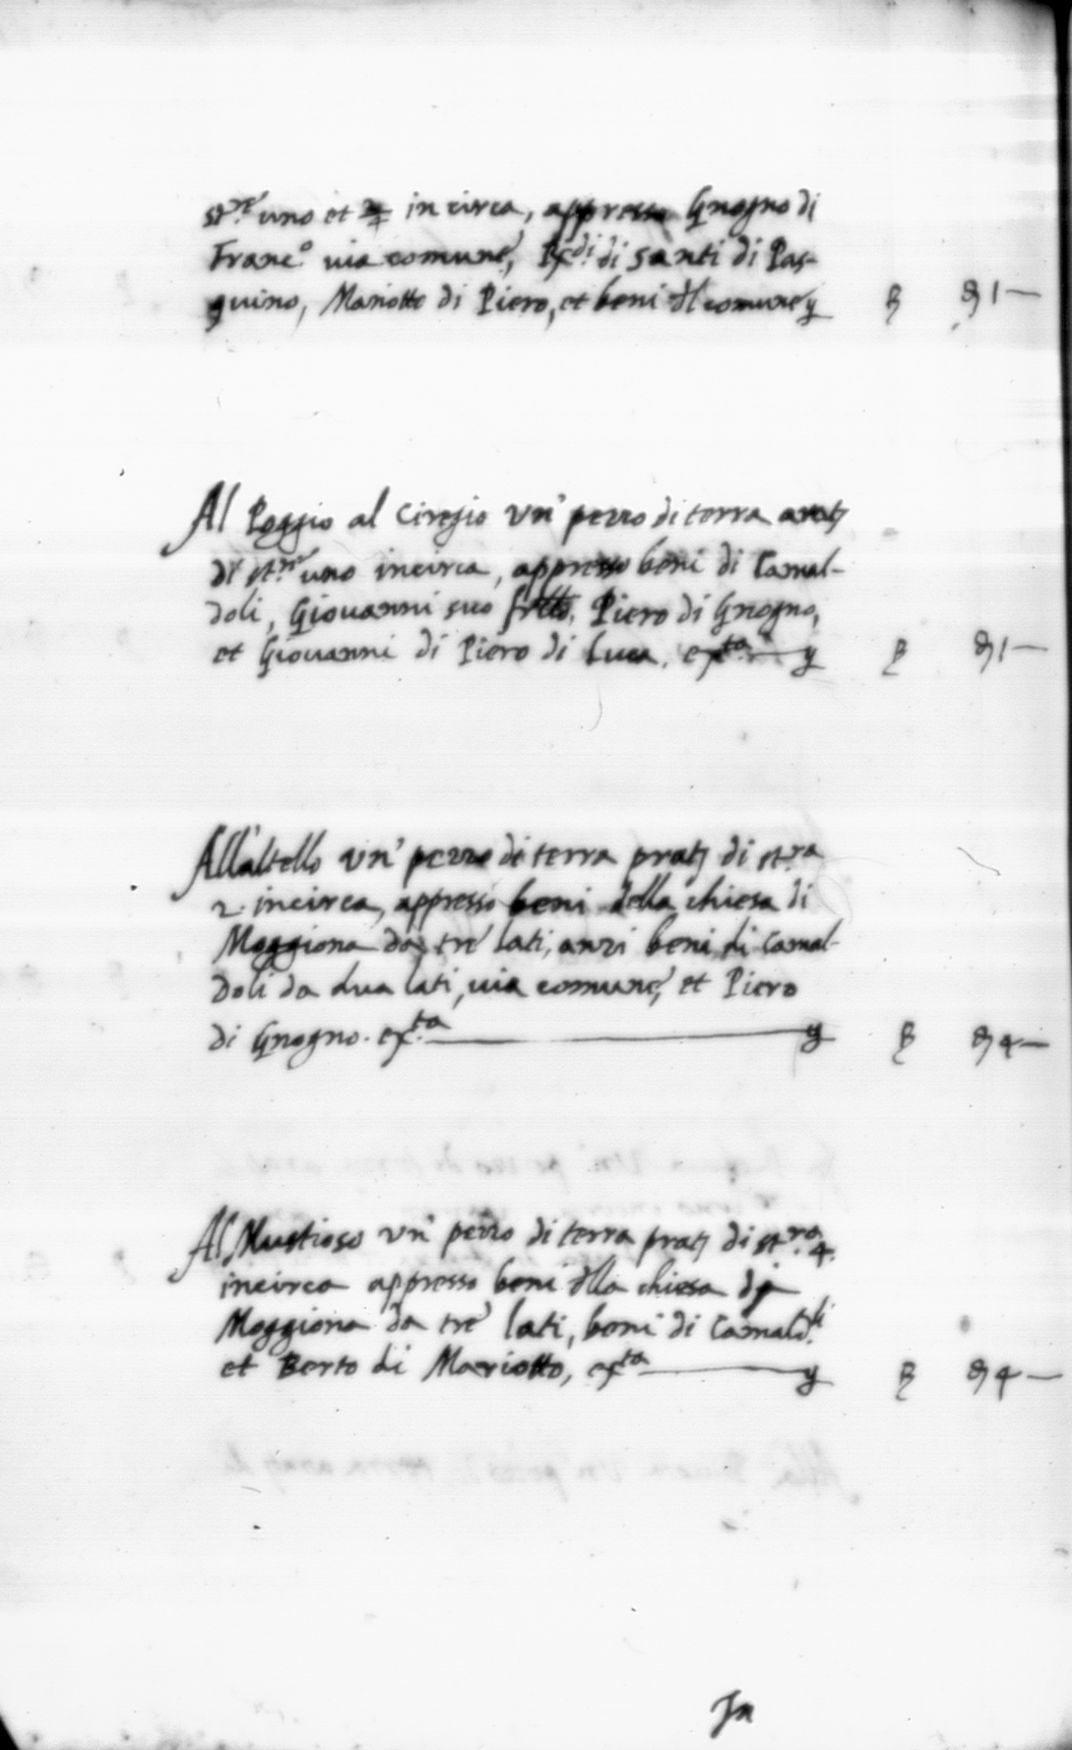 st.re uno et 3/4 in circa, appresso Gnogno di
Franc.o via comune, di Santi di Pas-
quino, Mariotto di Piero, et beni dl comune
Al Poggio al Ciregio Vn' pezzo di terra arat
di st.re uno incirca, appresso beni di Camal-
doli, Giovanni suo frtllo, Piero di Gnogno,
et Giovanni di Piero di Luca. ex.ta
All'altello vn' pezzo di terra prat di st.ra
2 incirca, appresso beni della chiesa di
Moggiona da tre lati, anzi beni di Camal-
doli da dua lati, via comune, et Piero
di Gnogno. ex.ta
Al Mustioso vn' pezzo di terra prat di st.ra 4.
incirca appresso beni dlla chiesa di
Moggiona da tre lati, beni di Camald.li
et Berto di Mariotto, ex.ta